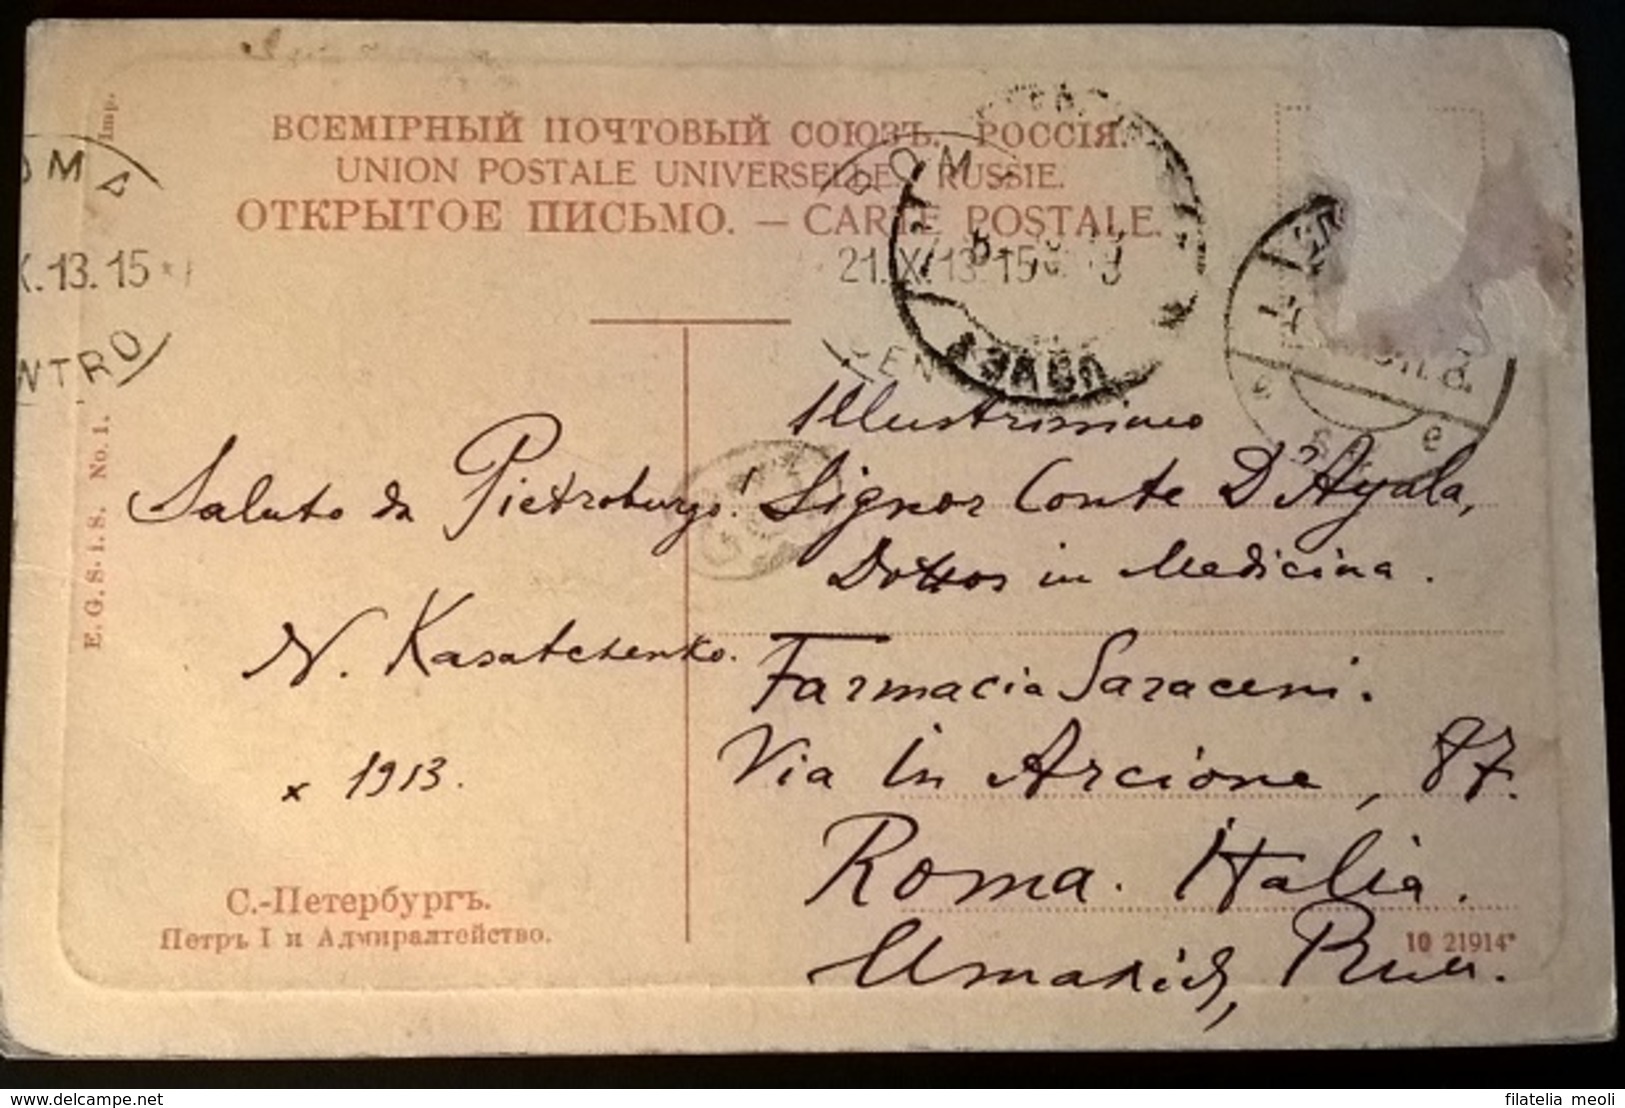 ВСЕМІРНЫЙ ПОЧТОВЫЙ СОЮЗЪ. РОССІЯ.
UNION POSTALE UNIVERSELLE. RUSSIE.
ОТКРЫТОЕ ПИСЬМО. — CARTE POSTALE.
OMA
X.13.15
NTRO
ROM
21.X.13.15
CEN
E. G. S. i. S. No. 1.
Imp.
Saluto da Pietroburgo!
N. Kasatchenko.
x 1913.
Illustrissimo
Signor Conte D'Ayala,
Dottor in Medicina.
Farmacia Saraceni.
Via in Arcione, 87.
Roma. Italia.
Италія, Рим.
С.-Петербургъ.
Петръ I и Адмиралтейство.
10 21914*
filatelia meoli
https://www.delcampe.net